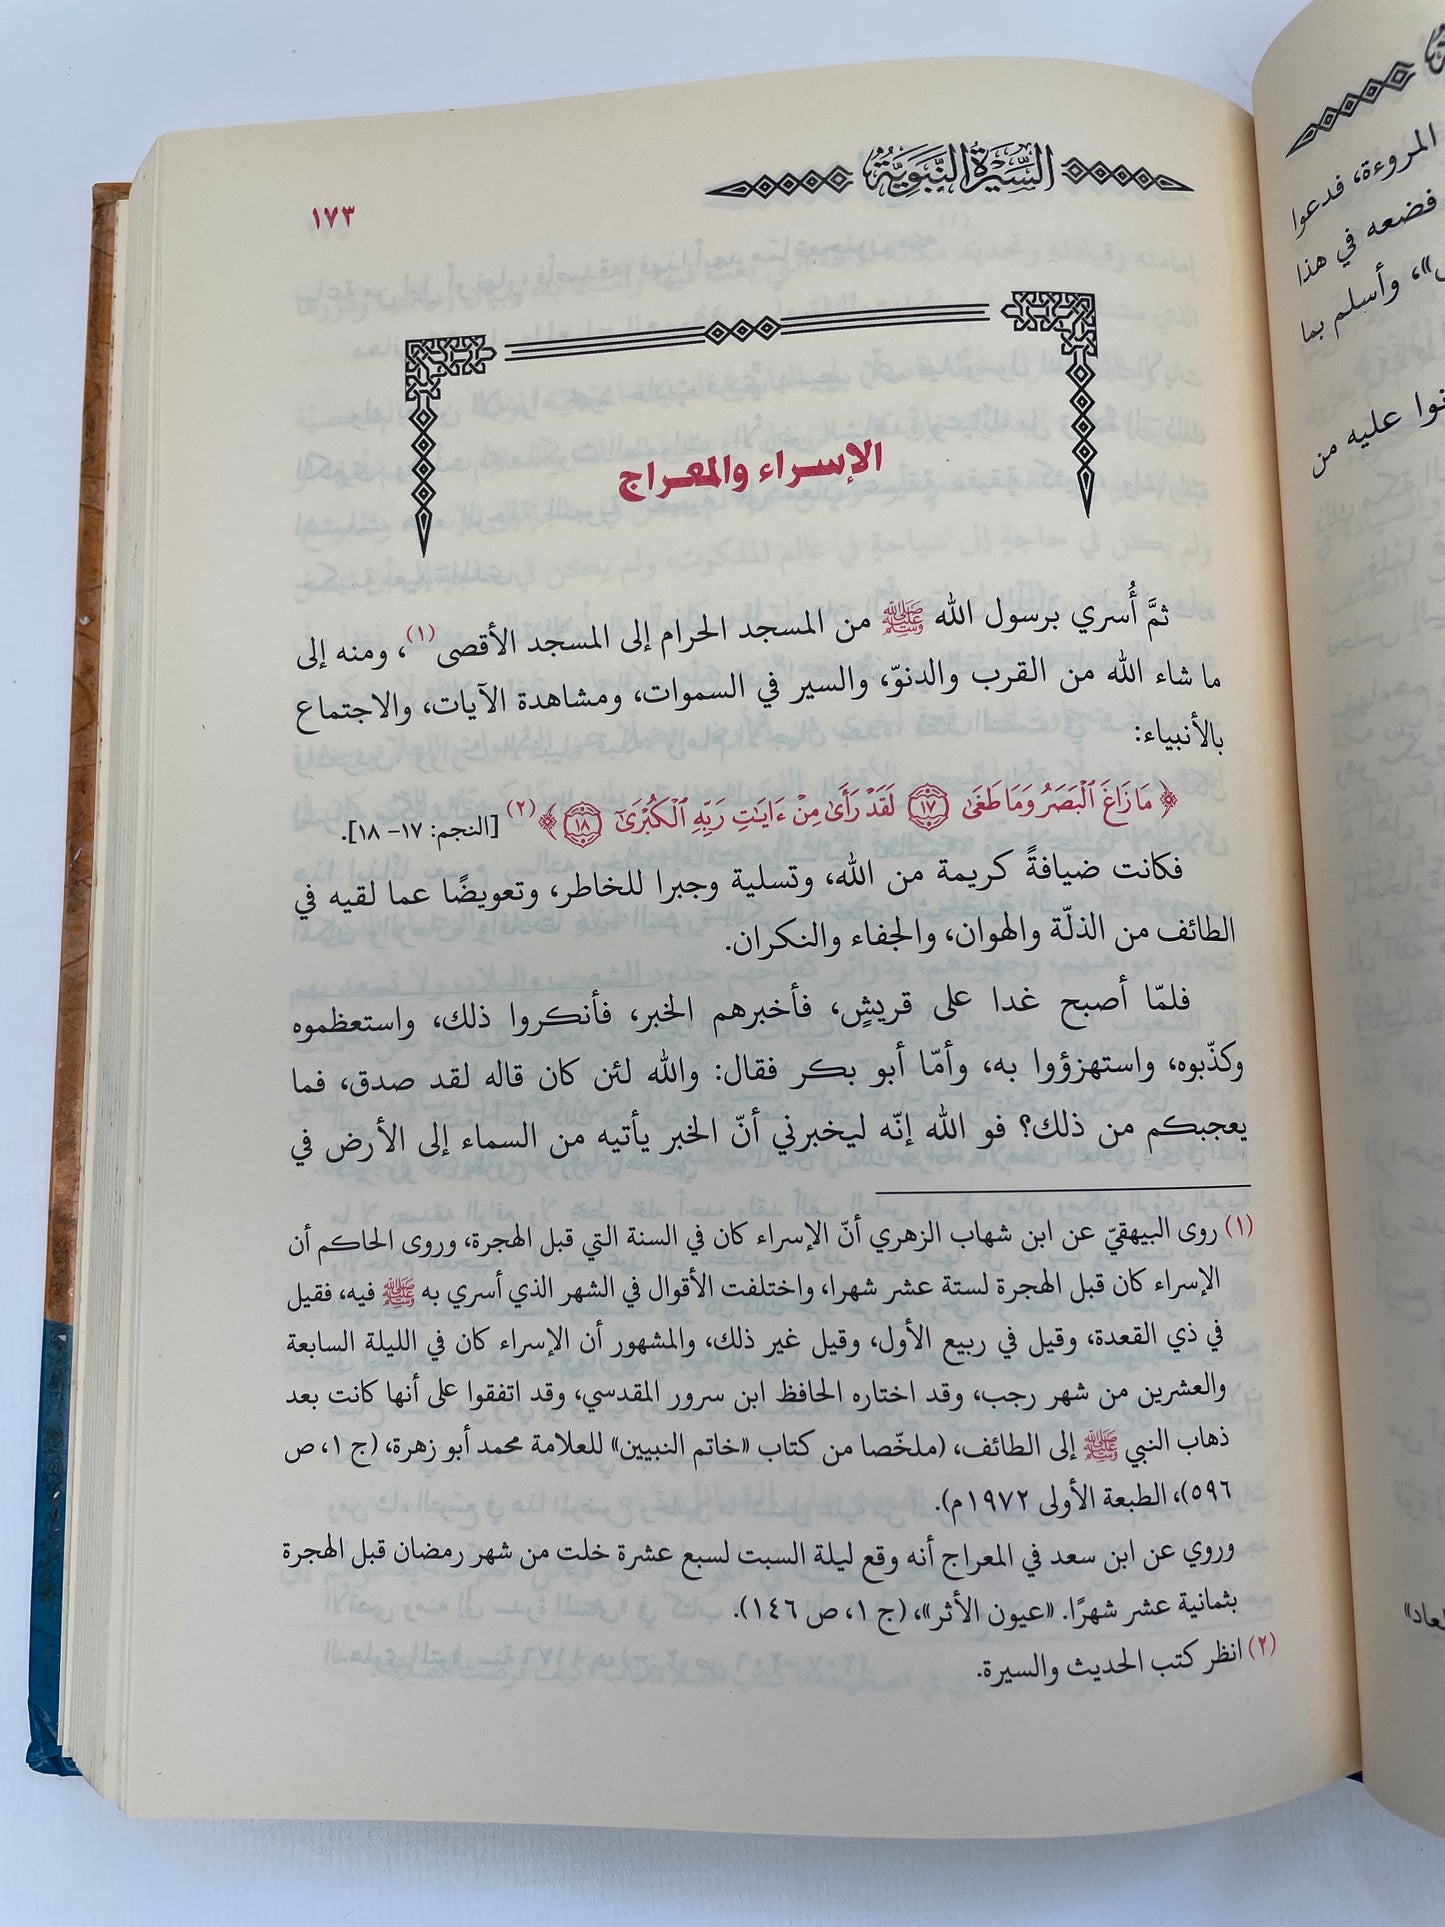 السِّيْرَةُ النَّبَوِيَّةُ
١٧٣
الإسراء والمعراج
ثمَّ أُسري برسول الله ﷺ من المسجد الحرام إلى المسجد الأقصى(١)، ومنه إلى
ما شاء الله من القرب والدنوّ، والسير في السموات، ومشاهدة الآيات، والاجتماع
بالأنبياء:
﴿ مَا زَاغَ ٱلْبَصَرُ وَمَا طَغَىٰ ۝١٧ لَقَدْ رَأَىٰ مِنْ ءَايَـٰتِ رَبِّهِ ٱلْكُبْرَىٰٓ ۝١٨ ﴾(٢) [النجم: ١٧- ١٨].
فكانت ضيافةً كريمة من الله، وتسلية وجبرا للخاطر، وتعويضًا عما لقيه في
الطائف من الذلّة والهوان، والجفاء والنكران.
فلمّا أصبح غدا على قريشٍ، فأخبرهم الخبر، فأنكروا ذلك، واستعظموه
وكذّبوه، واستهزؤوا به، وأمّا أبو بكر فقال: والله لئن كان قاله لقد صدق، فما
يعجبكم من ذلك؟ فو الله إنّه ليخبرني أنّ الخبر يأتيه من السماء إلى الأرض في
(١) روى البيهقيّ عن ابن شهاب الزهري أنّ الإسراء كان في السنة التي قبل الهجرة، وروى الحاكم أن
الإسراء كان قبل الهجرة لستة عشر شهرا، واختلفت الأقوال في الشهر الذي أسري به ﷺ فيه، فقيل
في ذي القعدة، وقيل في ربيع الأول، وقيل غير ذلك، والمشهور أن الإسراء كان في الليلة السابعة
والعشرين من شهر رجب، وقد اختاره الحافظ ابن سرور المقدسي، وقد اتفقوا على أنها كانت بعد
ذهاب النبي ﷺ إلى الطائف، (ملخّصا من كتاب «خاتم النبيين» للعلامة محمد أبو زهرة، (ج ١، ص
٥٩٦)، الطبعة الأولى ١٩٧٢م).
وروي عن ابن سعد في المعراج أنه وقع ليلة السبت لسبع عشرة خلت من شهر رمضان قبل الهجرة
بثمانية عشر شهرًا. «عيون الأثر»، (ج ١، ص ١٤٦).
(٢) انظر كتب الحديث والسيرة.
المروءة، فدعوا
فضعه في هذا
وأسلم بما
عليه من